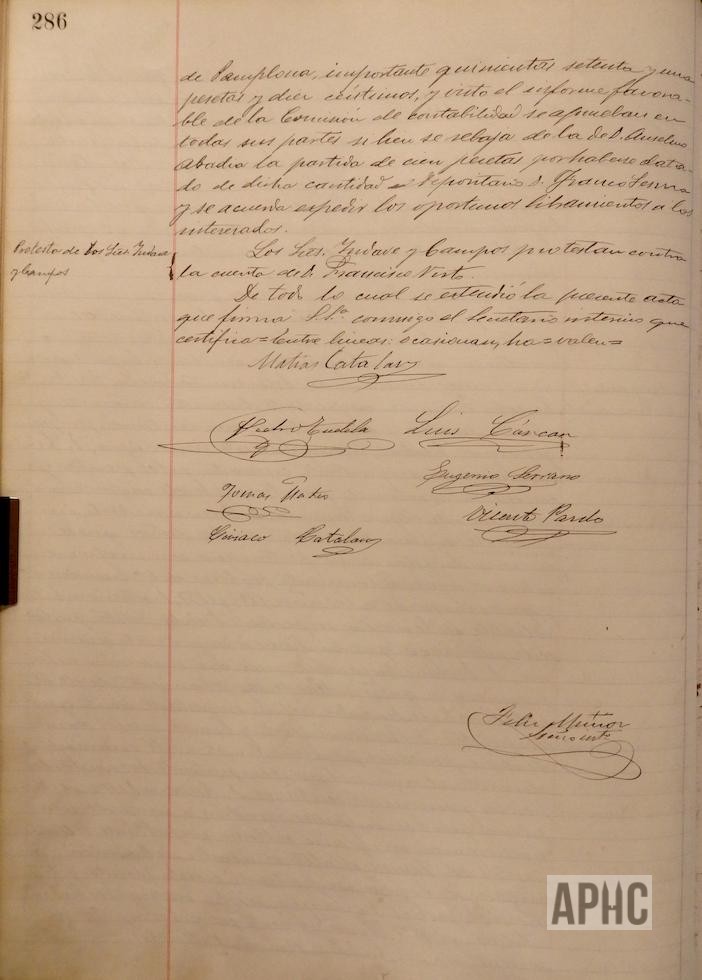 286
de Pamplona, importante quinientas setenta y una
pesetas y diez céntimos, y visto el informe favora-
ble de la Comisión de contabilidad se aprueban en
todas sus partes si bien se rebaja de la de D. Anselmo
Abadia la partida de cien pesetas por haberse data-
do de dicha cantidad el Depositario D. Franco Serra
y se acuerda expedir los oportunos libramientos a los
interesados.
Protesta de los Sres. Indave
y Campos
Los Sres. Indave y Campos protestan contra
la cuenta de D. Francisco Visto.
De todo lo cual se extendió la presente acta
que firma S.S.ª conmigo el Secretario interino que
certifica = Entre lineas: ocasionan, ha = valen =
Matias Catalan
Pedro Tudela Luis Cáncar
Eugenio Serrano
Tomas
Vicente Pardo
Ciriaco Catalan
Felix Muñoz
APHC